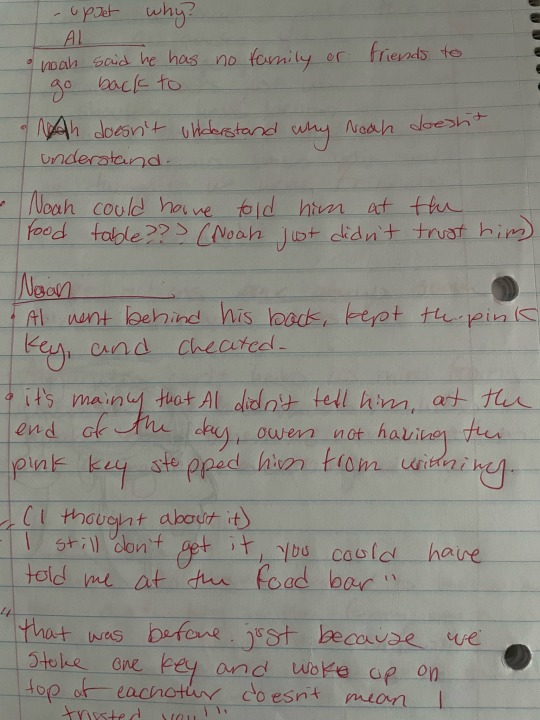 - upset why?
Al
• noah said he has no family or friends to
go back to
• NAh doesn't understand why Noah doesn't
understand.
• Noah could have told him at the
food table??? (Noah just didn't trust him)
Noah
• Al went behind his back, kept the pink
key, and cheated-
• it's mainly that Al didn't tell him, at the
end of the day, owen not having the
pink key stopped him from winning.
(I thought about it)
I still don't get it, you could have
told me at the food bar"
"that was before. just because we
stoke one key and woke up on
top of eachother doesn't mean I
trusted you!"